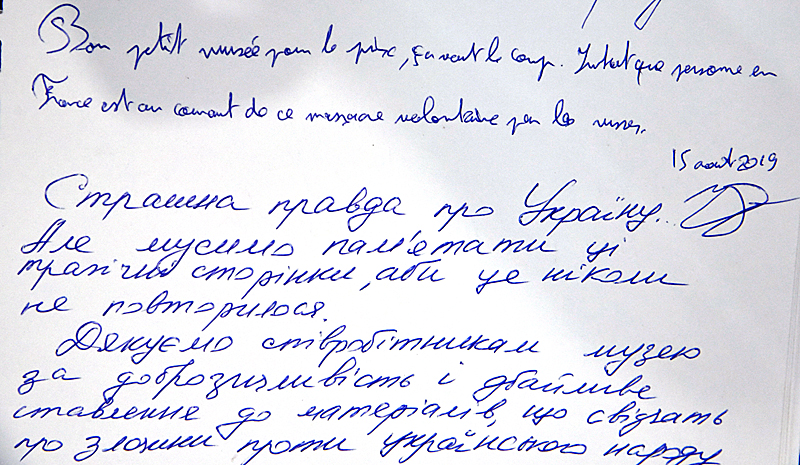 Bon petit musée pour le prix, ça vaut le coup. Surtout que personne en
France est au courant de ce massacre volontaire par les russes.
15 août 2019
Страшна правда про Україну..
Але мусимо пам'ятати ці
трагічні сторінки, аби це ніколи
не повторилося.
Дякуємо співробітникам музею
за доброзичливість і дбайливе
ставлення до матеріалів, що свідчать
про злочини проти українського народу